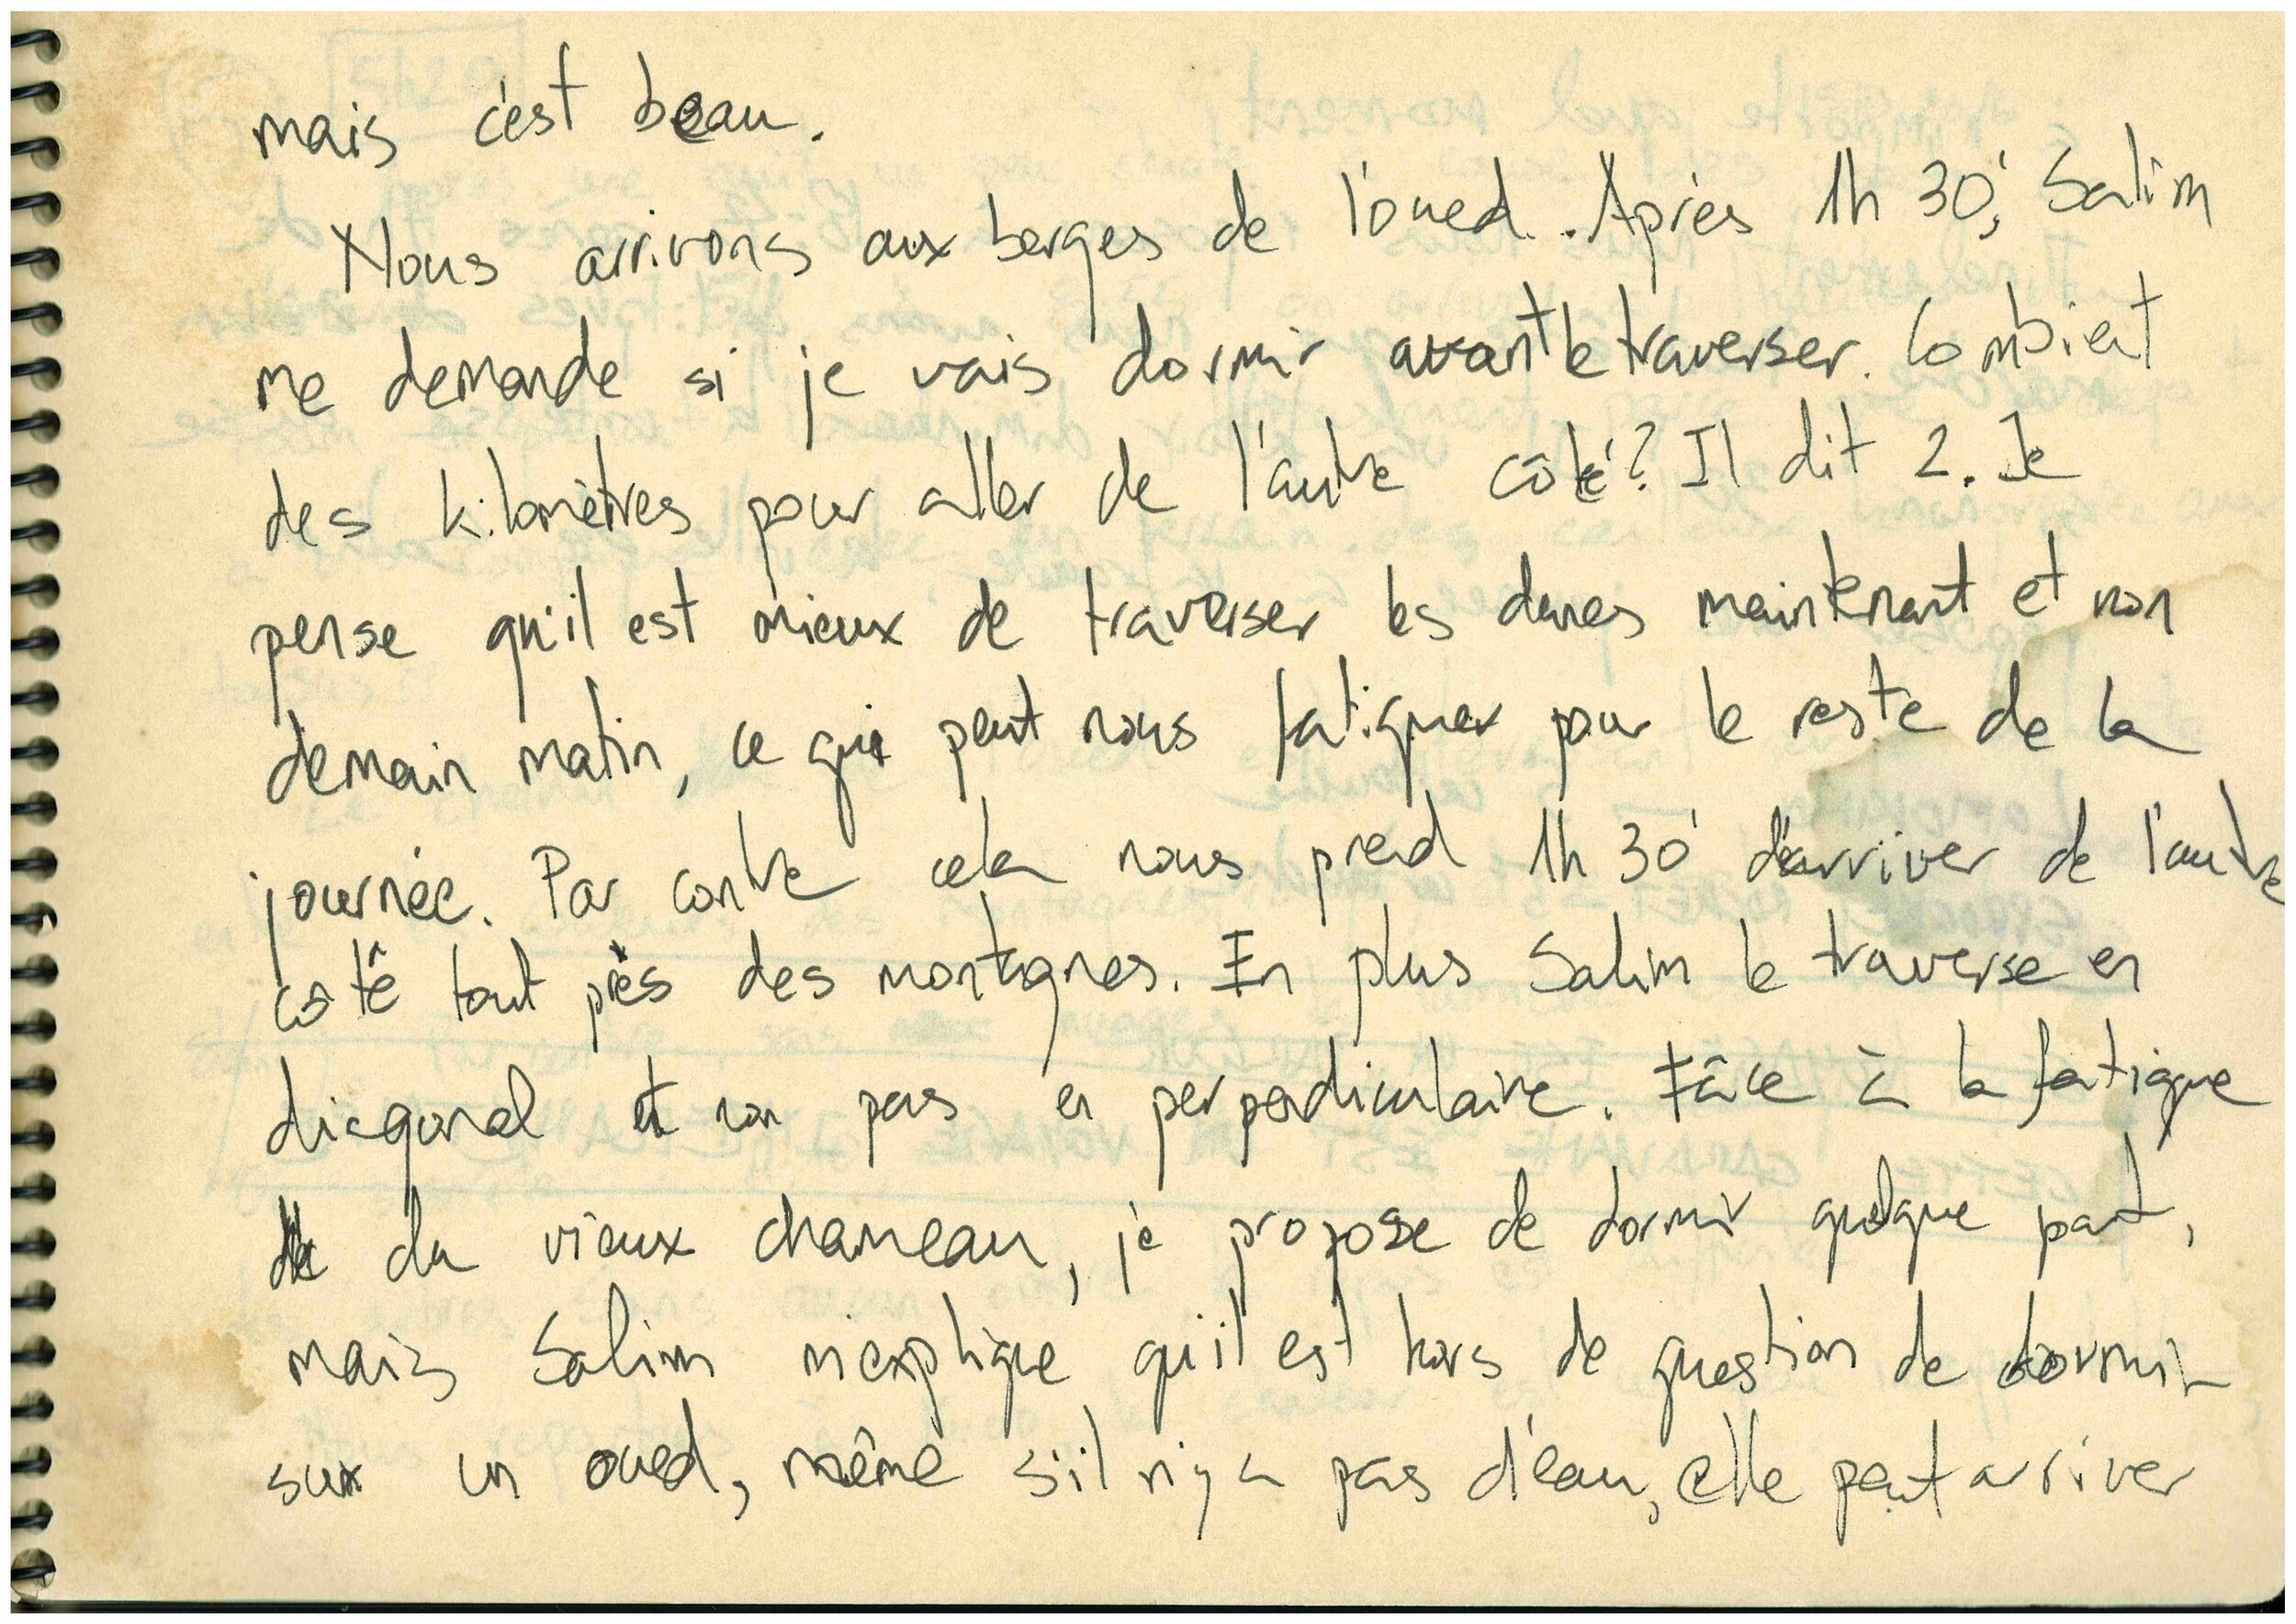 mais c'est beau.
Nous arrivons aux berges de l'oued. Après 1h 30', Salim
me demande si je vais dormir avant le traverser. Combient
des kilomètres pour aller de l'autre côté? Il dit 2. Je
pense qu'il est mieux de traverser les dunes maintenant et non
demain matin, ce qui peut nous fatiguer pour le reste de la
journée. Par contre cela nous prend 1h 30' d'arriver de l'autre
côté tout près des montagnes. En plus Salim le traverse en
diagonal et non pas en perpendiculaire. Fâce à la fatigue
du vieux chameau, je propose de dormir quelque part,
mais Salim m'explique qu'il est hors de question de dormir
sur un oued, même s'il n'y a pas d'eau, elle peut arriver